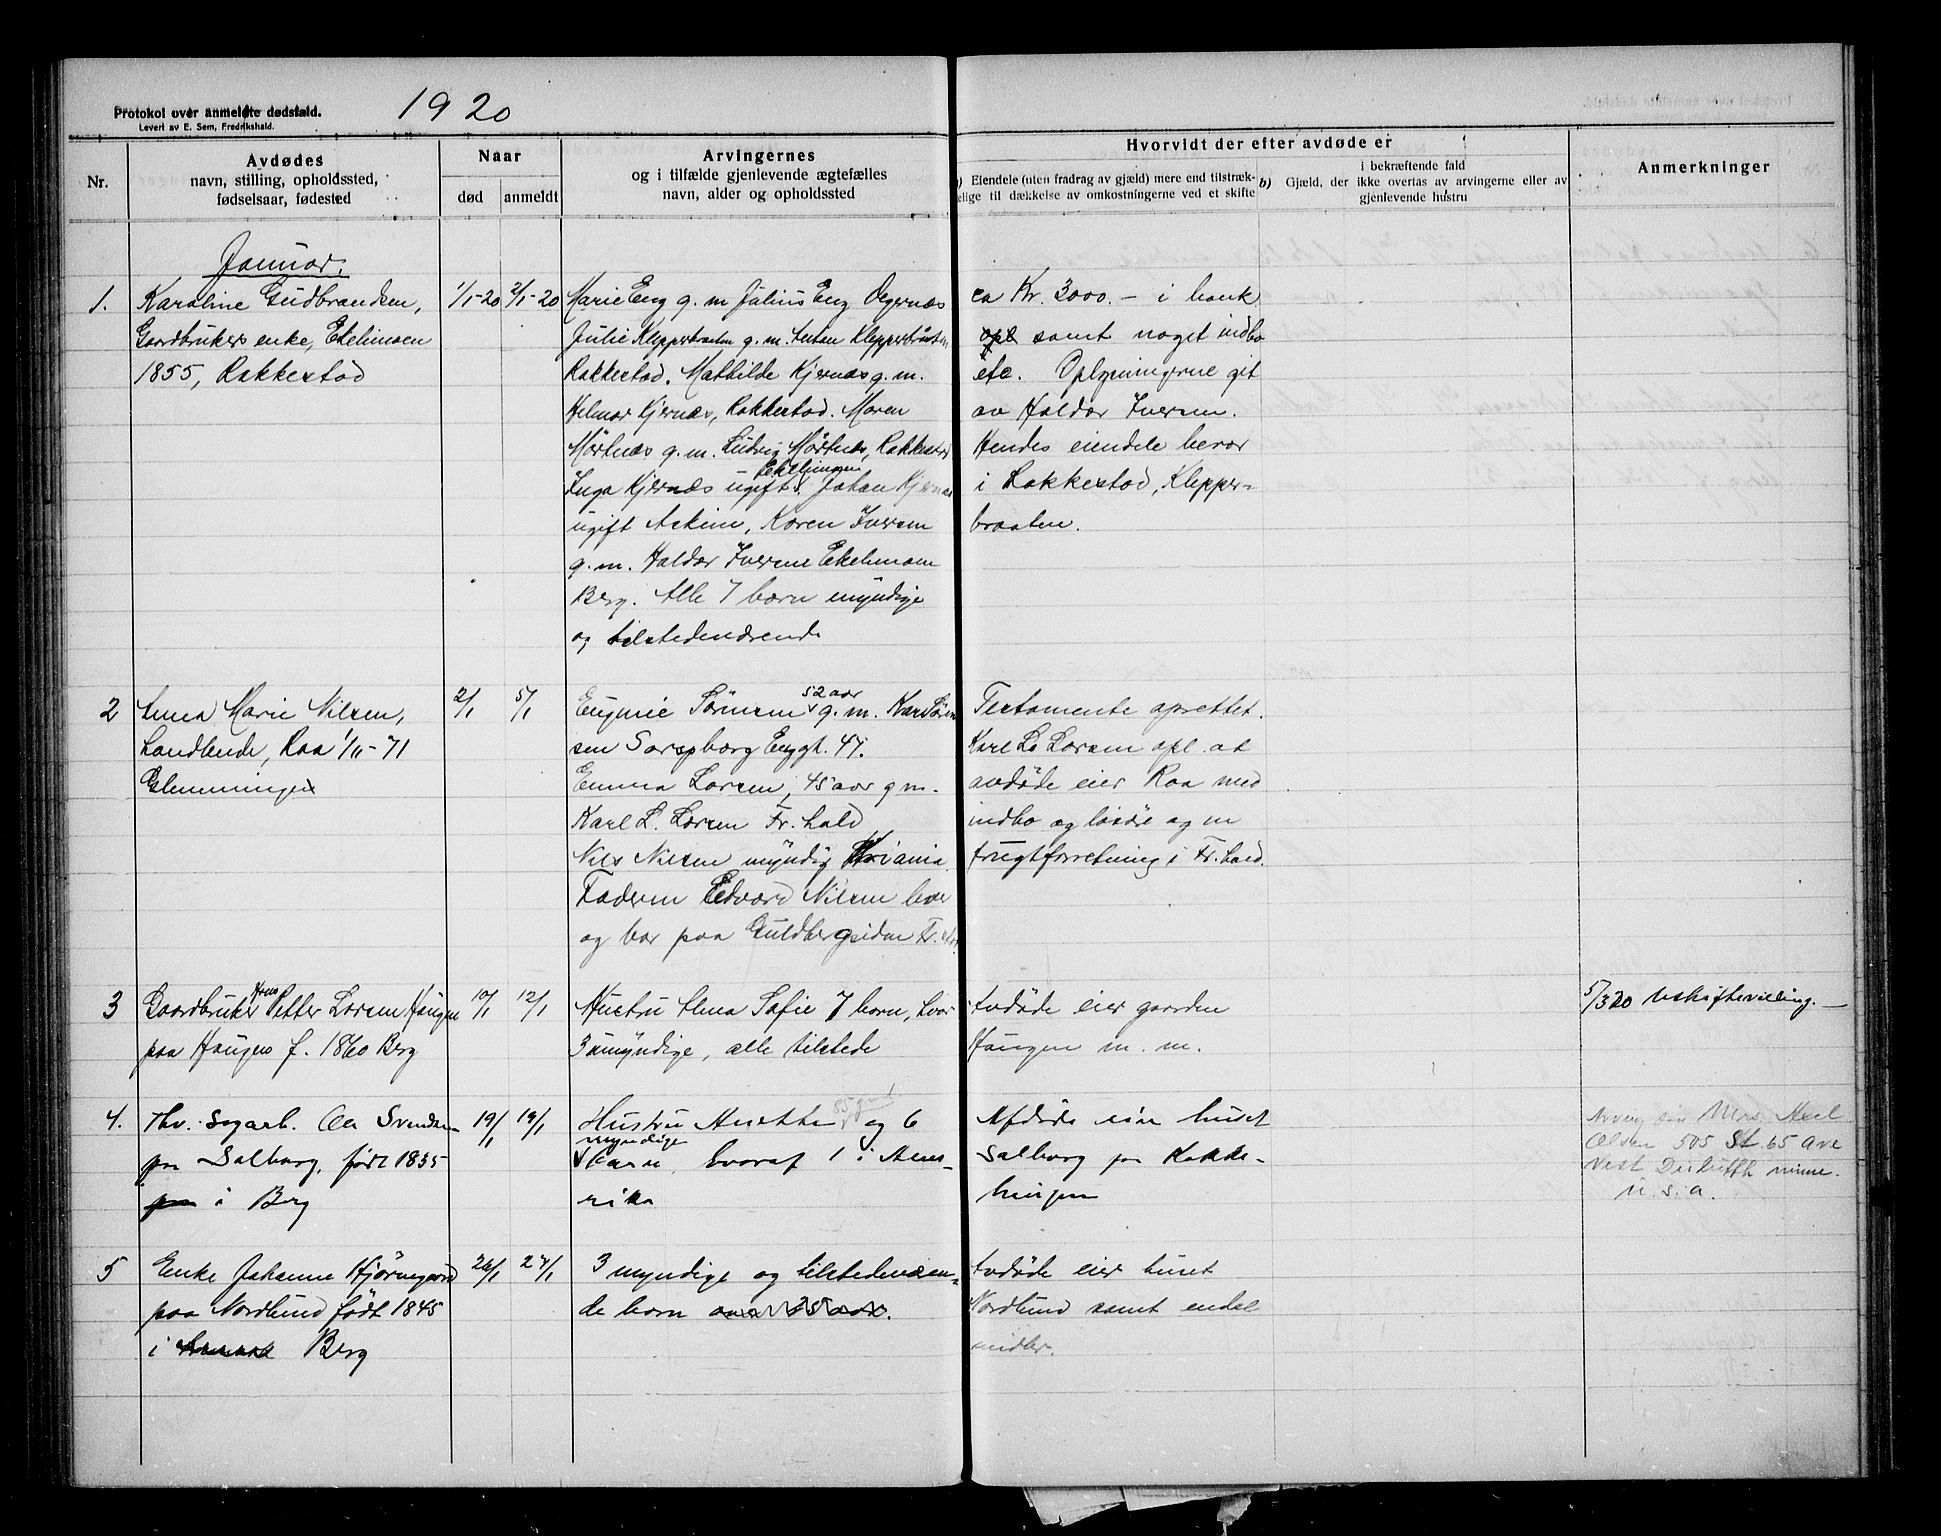 Protokol over anmeldte dødsfald.
Levert av E. Sem, Fredrikshald.
1920
Nr.
Avdødes
navn, stilling, opholdssted,
fødselsaar, fødested
Naar
død
anmeldt
Arvingernes
og i tilfælde gjenlevende ægtefælles
navn, alder og opholdssted
Hvorvidt der efter avdøde er
Eiendele (uten fradrag av gjæld) mere end tilstræk-
elige til dækkelse av omkostningerne ved et skifte
b) Gjæld, der i bekræftende fald
ikke overtas av arvingerne eller av
gjenlevende hustru
Anmerkninger
Januar.
1.
Karoline Gudbrandsen,
Gardbrukers enke, Ekelimoen
1855, Rakkestad
1/1-20
2/1-20
Marie Eng g.m Julius Eng Degernæs
Julie Klepperbraaten g.m. Anton Klepperbråten
Rakkestad. Mathilde Kjernæs g.m.
Helmar Kjernæs, Rakkestad. Maren
Mörtnæs g.m. Ludvig Mörtnæs, Rakkestad
Inga Kjernæs ugift Johan Kjernæs
ugift Askim, Karen Iversen
g.m. Haldor Iversen Ekelimoen
Berg. Alle 7 barn myndige
og tilstedeværende
ca Kr. 3000.- i bank
opl samt noget indbo
etc. Oplysningerne git
av Haldor Iversen.
Hendes eiendele beror
i Rakkestad, Klepper-
braaten.
2
Anna Marie Nilsen,
Landhende, Raa 1/11-71
Glemminge
2/1
5/1
52 aar
Eugenie Sörensen g.m. Karl Sören
sen Sarpsborg Enggt. 47.
Emma Larsen, 45 aar g m.
Karl L. Larsen Fr.hald
Nils Nilsen myndig Kriania
Faderen Edvard Nilsen lever
og bor paa Guldbergsiden Fr.
Testamente oprettet.
Karl L. Larsen opl. at
avdöde eier Raa med
indbo og lösöe og en
frugtforretning i Fr.hald.
3
Gaardbruker Hans Petter Larsen Haugen
paa Haugen f. 1860 Berg
10/1
12/1
Hustru Elma Sofie 7 barn, hvor
3 umyndige, alle tilstede
Avdöde eier gaarden
Haugen m. m.
5/3 20 Uskiftevilling.
4.
Thv. Sagarb. Ole Svendsen
paa Solborg, född 1835
paa i Berg
19/1
19/1
Hustru Anette og 6
myndige
barn, hvoraf 1 i Ame-
rika
Afdöde eier huset
Solborg paa Kokke-
haugen
Arving er Mrs. Axel
Olsen 505 St. 65 ave
Vest Duluth minne.
U.S.A.
5
Enke Johanne Hjörnegaard
paa Nordlund født 1845
i Berg
26/1
27/1
3 myndige og tilstedeværen-
de barn over 25 aar.
Avdöde eier huset
Nordlund samt endel
indbo.